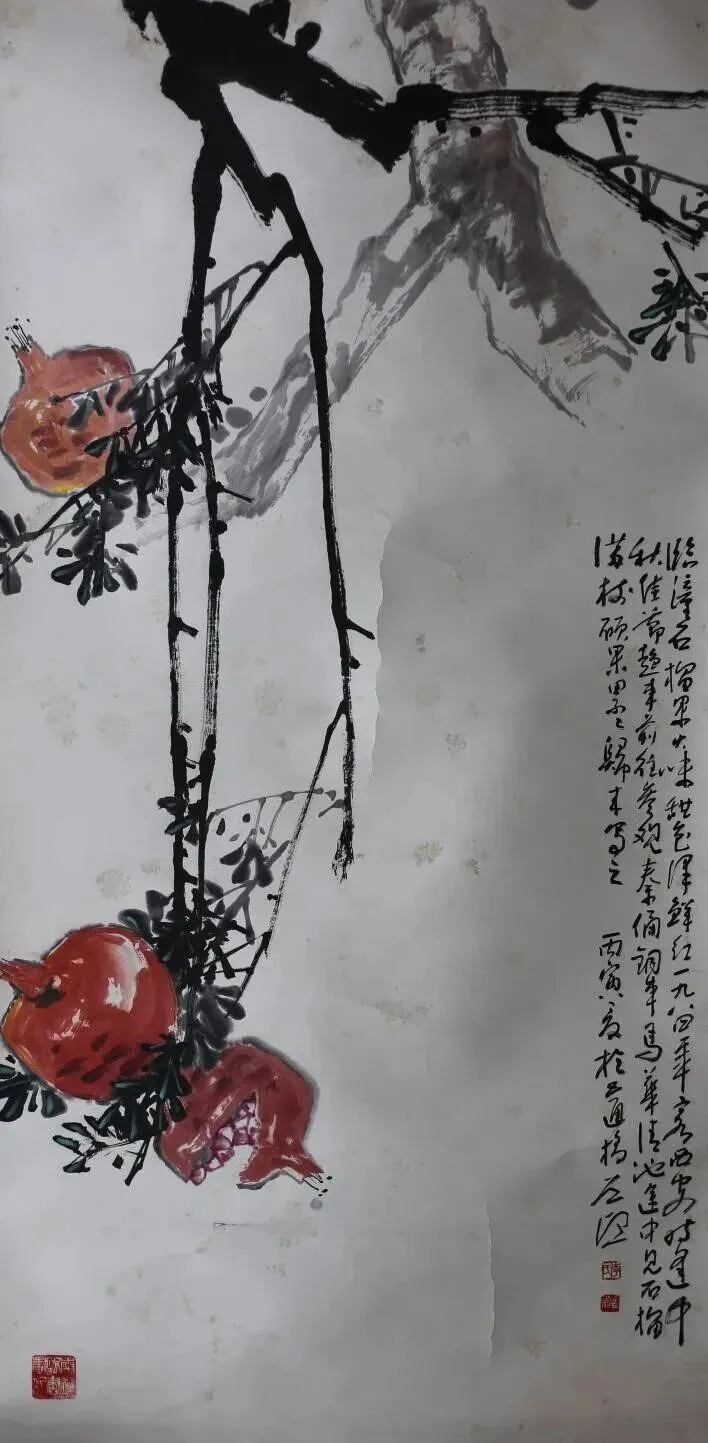 临潼石榴果大味甜色泽鲜红一九八四年客西安时逢中
秋佳节趋车前往参观秦俑铜车马华清池途中见石榴
满枝硕果累累归来写之
丙寅夏于五通桥